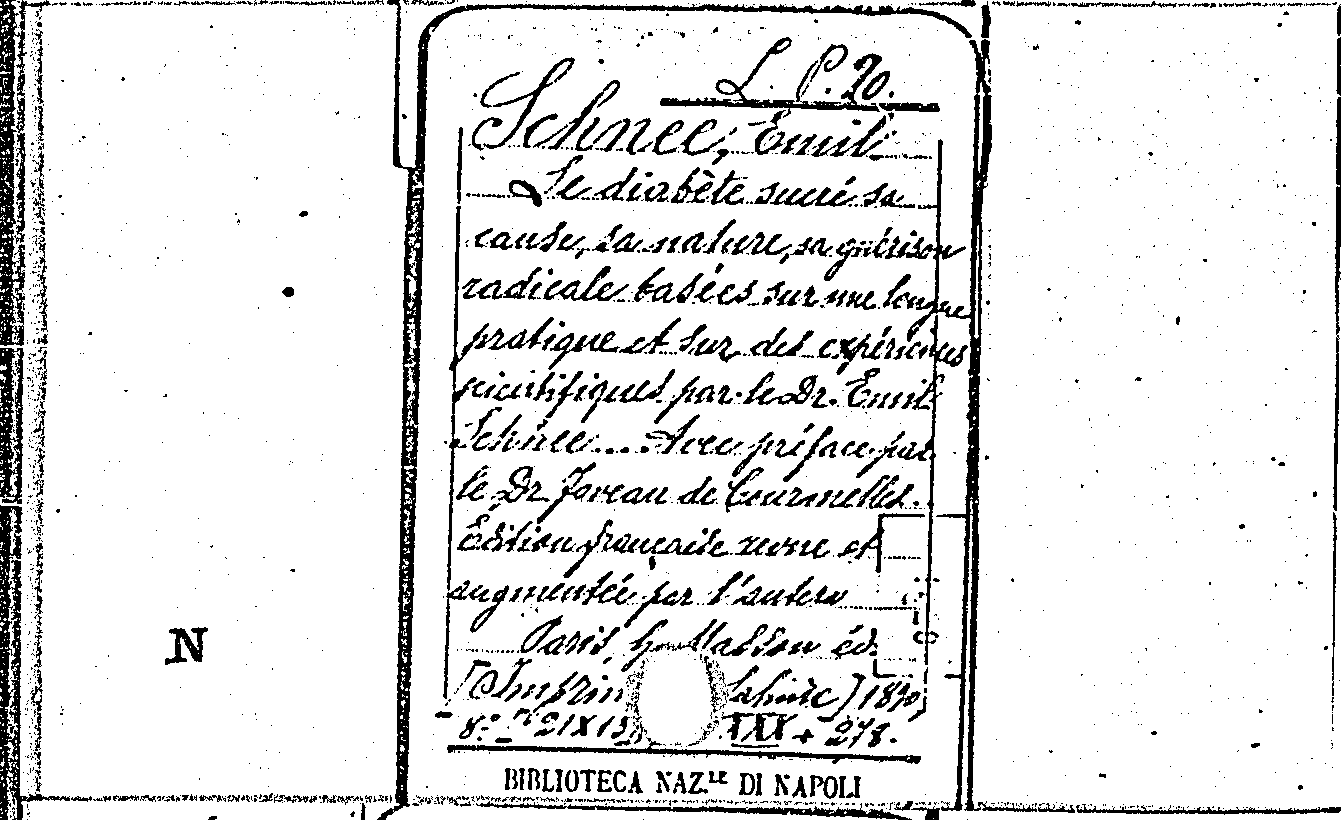 L. P. 20.
Schnee, Emil
Le diabète sucré sa
cause, sa nature, sa guérison
radicale basées sur une longue
pratique et sur des expériences
scientifiques par le Dr. Emil
Schnee... Avec préface par
le Dr Foveau de Courmelles..
Édition française revue et
augmentée par l'auteur
Paris, G. Masson éd.
[Imprim Lahure] 1890,
8.° 21X13 XXX + 278.
BIBLIOTECA NAZ.LE DI NAPOLI
N